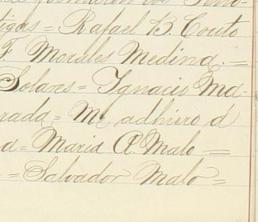 tigas = Rafael B. Couto
F. Morales Medina. =
Solares = Ignacio Ma-
rada = Me adhiero á
a = Maria A. Malo =
= Salvador Malo =